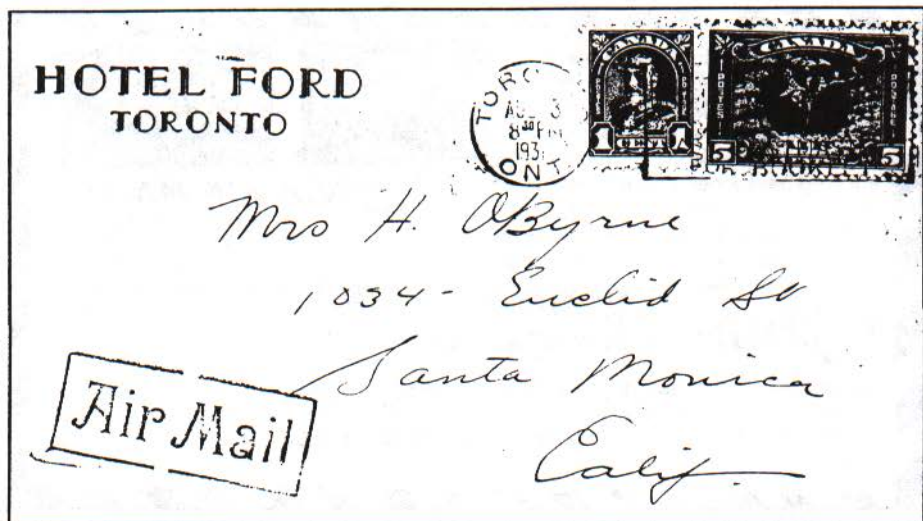 HOTEL FORD
TORONTO
TORO
8 30 PM
193
ONT
CANADA
1 CENT 1
CANADA
POSTES POSTAGE
5 5
Mrs H. OByrne
1034 - Euclid St
Santa Monica
Calif.
Air Mail